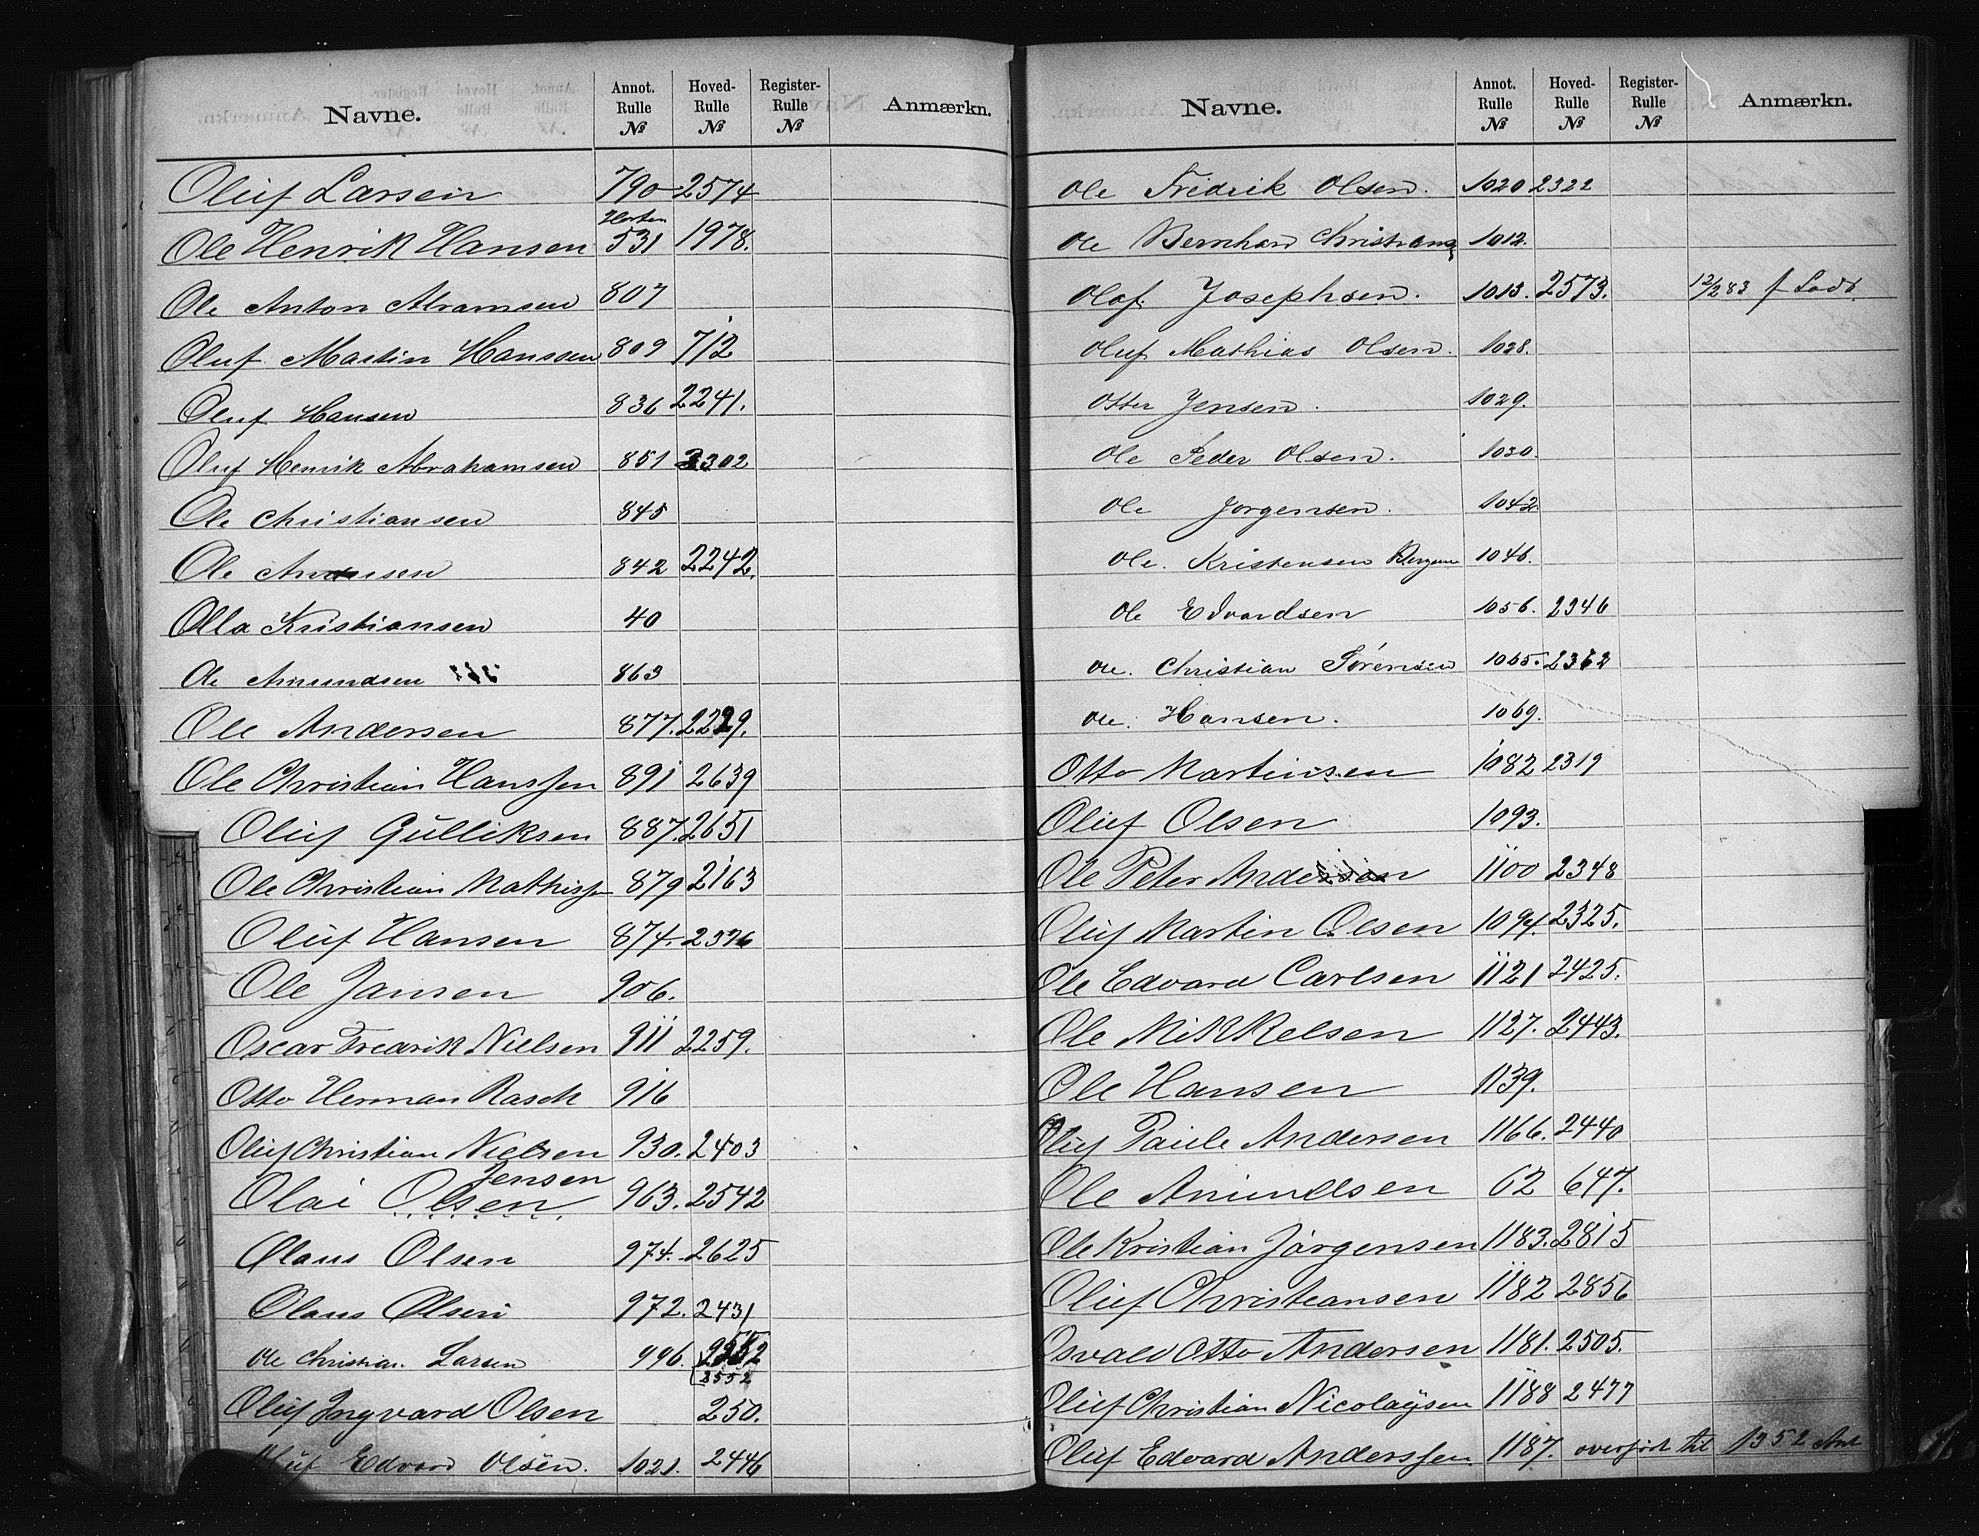 Navne. Annot. Rulle № Hoved-Rulle № Register-Rulle № Anmærkn.
Oluf Larsen 790 2574
Horten
Ole Henrik Hansen 531 1978.
Ole Anton Abramsen 807
Oluf Martin Hanssen 809 712
Oluf Hansen 836 2241.
Oluf Henrik Abrahamsen 851 2302
Ole Christiansen 845
Ole 842 2242.
Olla Kristiansen 40
Ole Amundsen 863
Ole Andersen 877. 2229.
Ole Christian Hanssen 891 2639
Oluf Gulliksen 887. 2651
Ole Christian Mathiss 879 2163
Oluf Hansen 874. 2376
Ole Jansen 906.
Oscar Fredrik Nielsen 911 2259.
Otto Herman Rasch 916
Oluf Christian Nielsen 930. 2403
Jensen
Olai Olsen 963. 2542
Olaus Olsen 974. 2625
Olaus Olsen 972. 2431
Ole Christian Larsen 996.
2552
Oluf Ingvard Olsen 250.
Oluf Edvard Olsen. 1021. 2446
Navne. Annot. Rulle № Hoved-Rulle № Register-Rulle № Anmærkn.
Ole Fredrik Olsen. 1020 2322
Ole Bernhard Christians 1012.
Olaf Josephsen. 1013. 2573. 12/2 83 f Lods
Oluf Mathias Olsen. 1028.
Otter Jensen. 1029.
Ole Peder Olsen. 1030.
Ole Jorgensen. 1042
Ole. Kristensen Bergem 1046.
Ole Edvardsen 1056. 2346
Ole. Christian Sørensen 1065. 2362
Ole. Hansen. 1069.
Otto Martinsen 1082 2319
Oluf Olsen 1093.
Ole Peter Andersen 1100 2348
Oluf Martin Olsen 1094. 2325.
Ole Edvard Carlsen 1121 2425.
Ole Mikkelsen 1127. 2443.
Ole Hansen 1139.
Oluf Paule Andersen 1166. 2440
Ole Amundsen 62 647.
Ole Kristian Jørgensen 1183. 2815
Oluf Christiansen 1182 2856
Osvald Otto Andersen 1181. 2505.
Oluf Christian Nicolaysen 1188 2477
Oluf Edvard Anderssen. 1187. overført til 1352 Ant